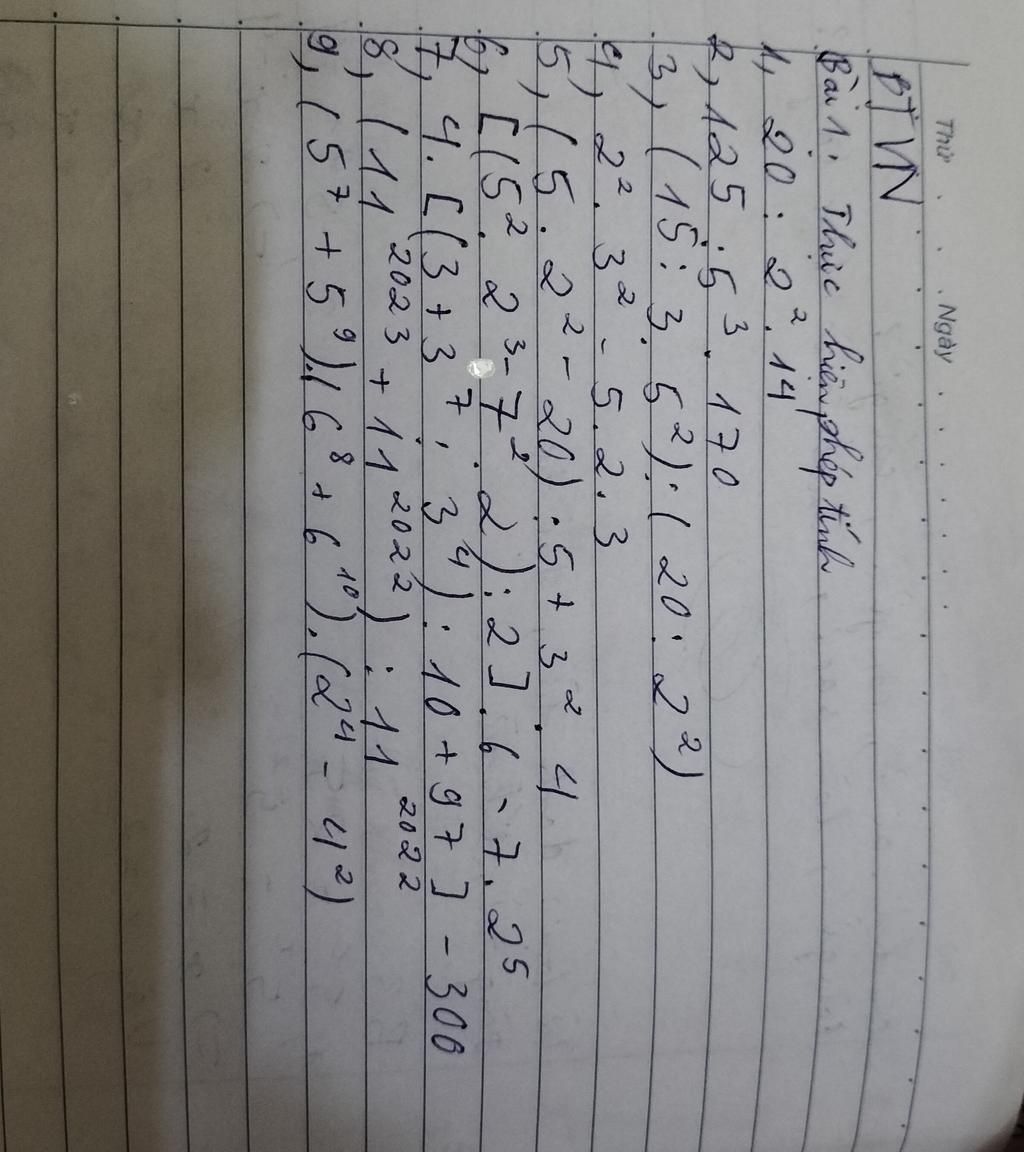 Thứ . . . Ngày . . . . . . .
BTVN
Bài 1: Thực hiện phép tính
1, 20 : 2² . 14
2, 125 : 5³ . 170
3, (15 : 3 . 5²) : (20 : 2²)
4, 2² . 3² - 5 . 2 . 3
5, (5 . 2² - 20) : 5 + 3² . 4
6, [(5² . 2³ - 7² . 2) : 2] . 6 - 7 . 2⁵
7, 4 . [(3 + 3⁷ : 3⁴) : 10 + 97] - 300
8, (11²⁰²³ + 11²⁰²²) : 11²⁰²²
9, (5⁷ + 5⁹) . (6⁸ + 6¹⁰) . (2⁴ - 4²)